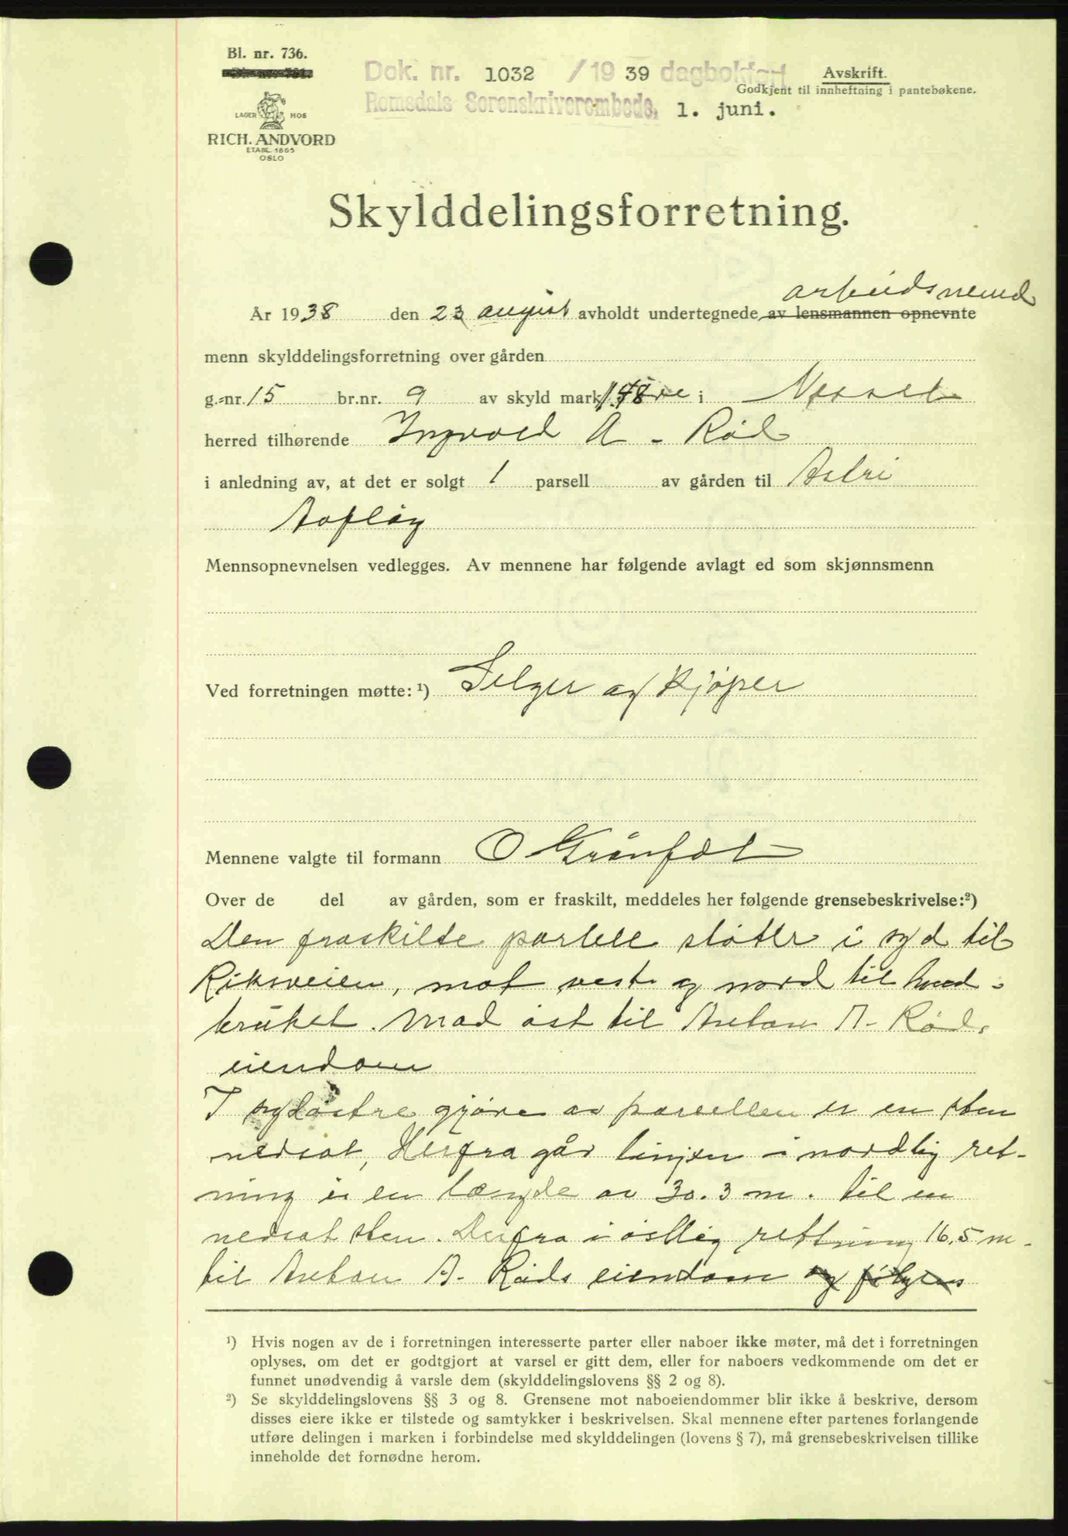 Bl. nr. 736.
LAGER HOS
RICH. ANDVORD
ETABL. 1865
OSLO
Dok. nr. 1032 /19 39 dagbokført
Romsdals Sorenskriverembede, 1. juni.
Avskrift.
Godkjent til innheftning i pantebøkene.
Skylddelingsforretning.
arbeidsnemd
År 1938 den 23 august avholdt undertegnede av lensmannen opnevnte
menn skylddelingsforretning over gården
g.-nr. 15 br.nr. 9 av skyld mark i Nesset
herred tilhørende Ingvald A. Rød
i anledning av, at det er solgt 1 parsell av gården til Astri
Aafløy
Mennsopnevnelsen vedlegges. Av mennene har følgende avlagt ed som skjønnsmenn
Ved forretningen møtte: ¹) Selger og Kjøper
Mennene valgte til formann O Grønfdt
Over de del av gården, som er fraskilt, meddeles her følgende grensebeskrivelse:²)
Den fraskilte parsell støtter i syd til
Riksveien, mot vest og nord til hoved-
bruket. Mod øst til Anton A. Røds
eiendom
I sydøstre hjøre av parsellen er en sten
nedsat, Herfra går linjen i nordlig ret-
ning i en længde av 30.3 m. til en
nedsat sten. Derfra i østlig rettning 16,5 m.
til Anton A. Røds eiendom og følges
¹) Hvis nogen av de i forretningen interesserte parter eller naboer ikke møter, må det i forretningen
oplyses, om det er godtgjort at varsel er gitt dem, eller for naboers vedkommende om det er
funnet unødvendig å varsle dem (skylddelingslovens §§ 2 og 8).
²) Se skylddelingslovens §§ 3 og 8. Grensene mot naboeiendommer blir ikke å beskrive, dersom
disses eiere ikke er tilstede og samtykker i beskrivelsen. Skal mennene efter partenes forlangende
utføre delingen i marken i forbindelse med skylddelingen (lovens § 7), må grensebeskrivelsen tillike
inneholde det fornødne herom.